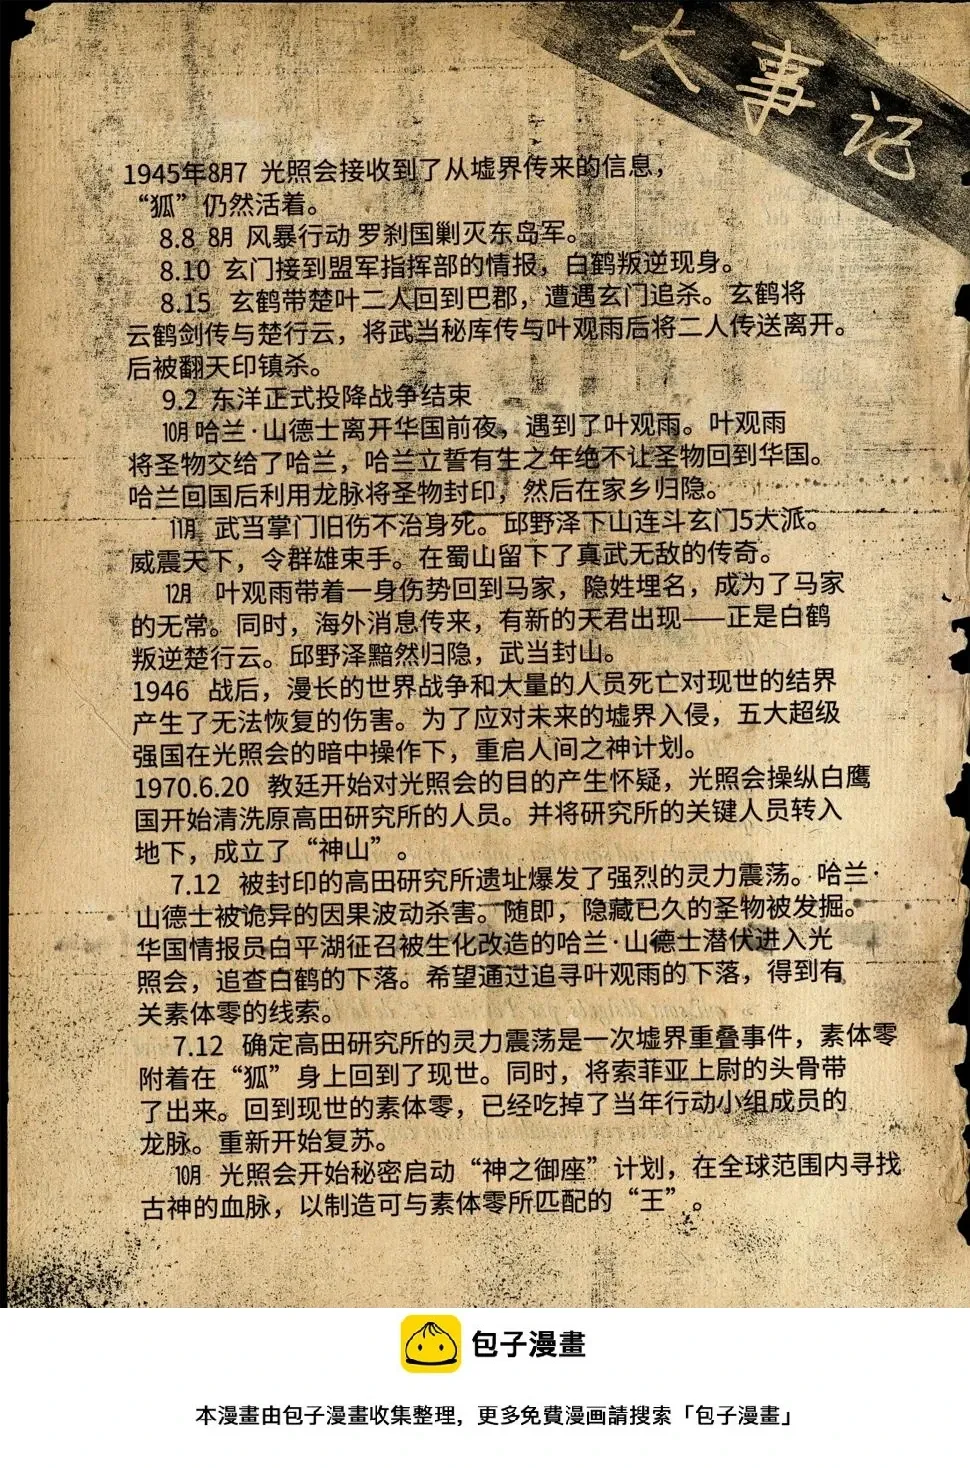 大事记
1945年8月7 光照会接收到了从墟界传来的信息，
“狐”仍然活着。
8.8 8月 风暴行动 罗刹国剿灭东岛军。
8.10 玄门接到盟军指挥部的情报，白鹤叛逆现身。
8.15 玄鹤带楚叶二人回到巴郡，遭遇玄门追杀。玄鹤将
云鹤剑传与楚行云，将武当秘库传与叶观雨后将二人传送离开。
后被翻天印镇杀。
9.2 东洋正式投降战争结束
10月 哈兰·山德士离开华国前夜，遇到了叶观雨。叶观雨
将圣物交给了哈兰，哈兰立誓有生之年绝不让圣物回到华国。
哈兰回国后利用龙脉将圣物封印，然后在家乡归隐。
11月 武当掌门旧伤不治身死。邱野泽下山连斗玄门5大派。
威震天下，令群雄束手。在蜀山留下了真武无敌的传奇。
12月 叶观雨带着一身伤势回到马家，隐姓埋名，成为了马家
的无常。同时，海外消息传来，有新的天君出现——正是白鹤
叛逆楚行云。邱野泽黯然归隐，武当封山。
1946 战后，漫长的世界战争和大量的人员死亡对现世的结界
产生了无法恢复的伤害。为了应对未来的墟界入侵，五大超级
强国在光照会的暗中操作下，重启人间之神计划。
1970.6.20 教廷开始对光照会的目的产生怀疑，光照会操纵白鹰
国开始清洗原高田研究所的人员。并将研究所的关键人员转入
地下，成立了“神山”。
7.12 被封印的高田研究所遗址爆发了强烈的灵力震荡。哈兰·
山德士被诡异的因果波动杀害。随即，隐藏已久的圣物被发掘。
华国情报员白平湖征召被生化改造的哈兰·山德士潜伏进入光
照会，追查白鹤的下落。希望通过追寻叶观雨的下落，得到有
关素体零的线索。
7.12 确定高田研究所的灵力震荡是一次墟界重叠事件，素体零
附着在“狐”身上回到了现世。同时，将索菲亚上尉的头骨带
了出来。回到现世的素体零，已经吃掉了当年行动小组成员的
龙脉。重新开始复苏。
10月 光照会开始秘密启动“神之御座”计划，在全球范围内寻找
古神的血脉，以制造可与素体零所匹配的“王”。
包子漫畫
本漫畫由包子漫畫收集整理，更多免費漫画請搜索「包子漫畫」